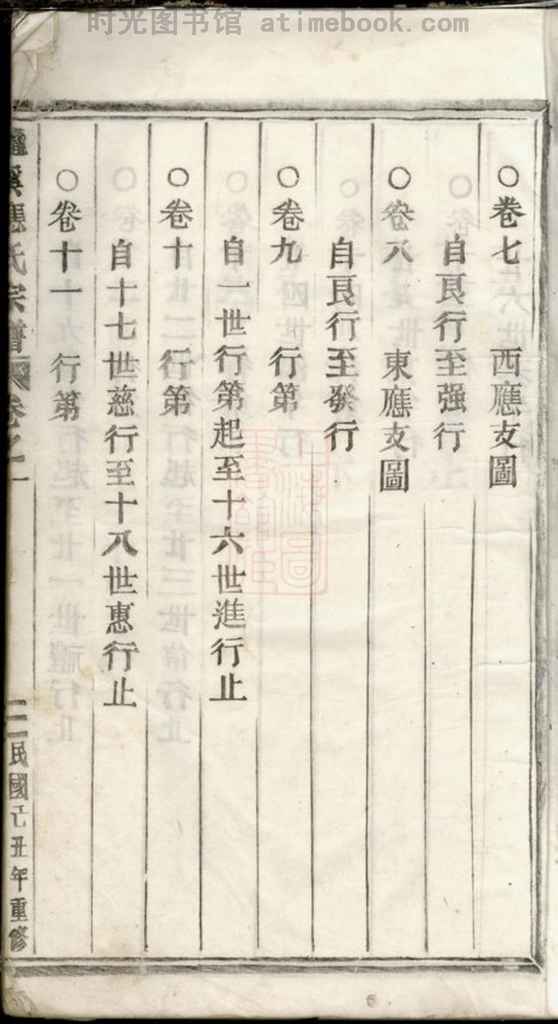 时光图书馆 atimebook.com
○卷七 西應支圖
自良行至强行
○卷八 東應支圖
自良行至發行
○卷九 行第
自一世行第起至十六世進行止
○卷十 行第
自十七世慈行至十八世惠行止
○卷十一 行第
溪應氏宗譜 卷之一
三 民國己丑年重修